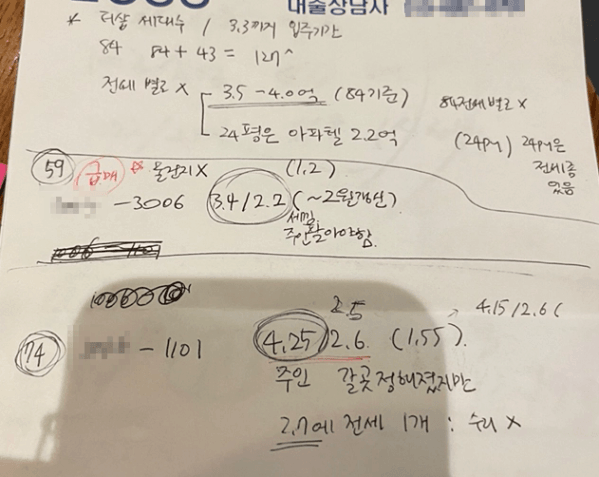 대출상담사
* 더샵 세대수 / 3.3까지 입주기간
84 84+43 = 127^
전세 별로 X
3.5-4.0억 (84기준)
84전세별로 X
24평은 아파텔 2.2억
(24py) 24py은 전세종 있음
59 급매 ☆ 물건지X (1.2)
-3006 3.4/2.2 (~2월갱신)
세낌
주인 팔아야함.
2.5
4.15/2.6 (
74 -1101 4.25/2.6 (1.55).
주인 갈곳정해졌지만
2.7에 전세 1개 : 수리 X